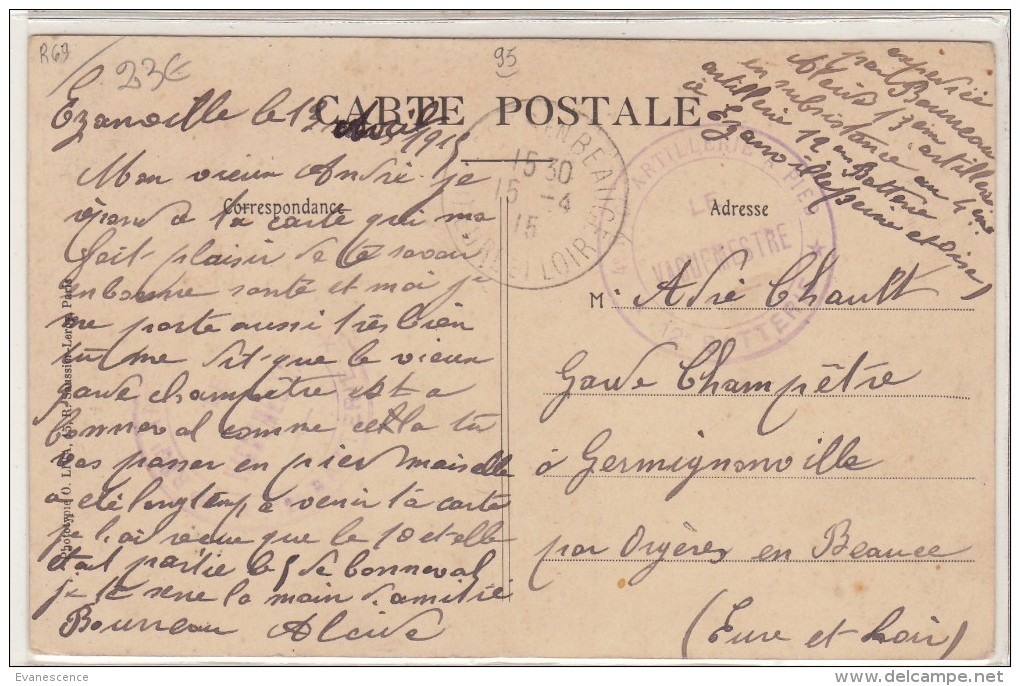 R67
23€
95
CARTE POSTALE
Correspondance
Adresse
Ezanville le 12 avril 1915
Mon vieux André je
répond a ta carte qui ma
fait plaisir de te savoir
en bonne santé et moi je
me porte aussi très bien
tu me dit que le vieux
garde champetre est a
bonneval comme cella tu
vas passer en pied mais elle
a été longtemp a venir ta carte
je l'ai recue que le 10 et elle
était partie le 5 de bonneval
je te sere la main d'amitié
Bourreau Alcide
expedié
par Bourreau
Alcide 13ème artillerie
en subsistance au 4ème
artillerie 12em Batterie
à Ezanville (Seine et Oise)
M. Adré Chault
Garde Champêtre
à Germignonville
par Orgères en Beauce
(Eure et Loir)
EN BEAUCE
15 30
15 -4
15
EURE ET LOIR
ARTILLERIE A PIED
LE
VAGUEMESTRE
12e BATTERIE
Phototypie O. L'H
Paris
Evanescence
delcampe.net